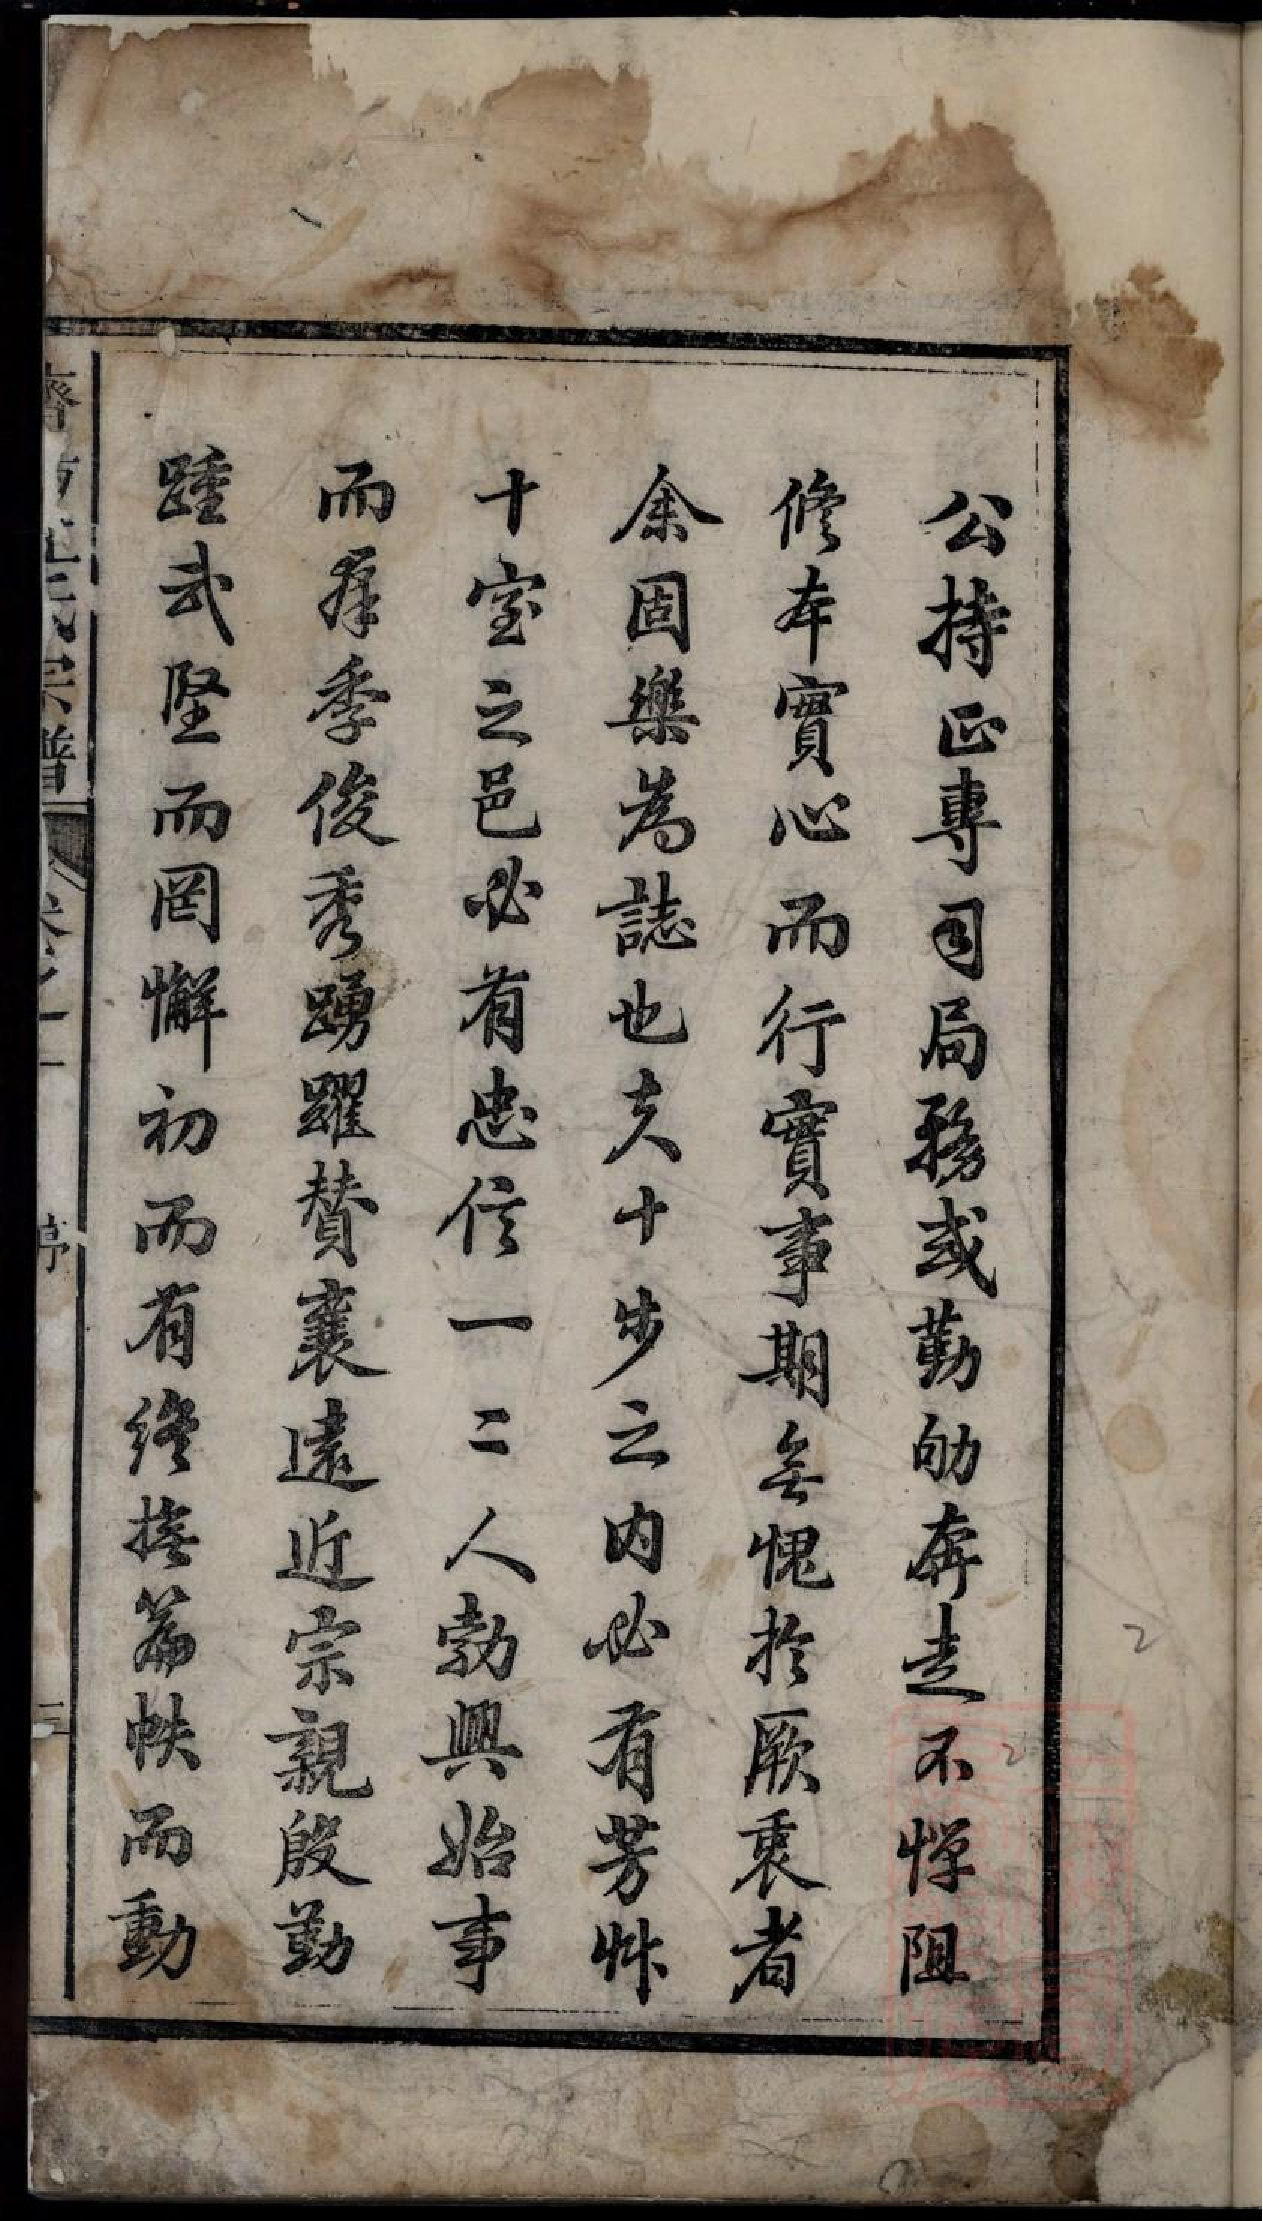 公持正專司局務或勤劬奔走不憚阻
修本實心而行實事期無愧於厥衷者
余固樂為誌也夫十步之内必有芳艸
十室之邑必有忠信一二人勃興始事
而羣季俊秀踴躍贊襄遠近宗親殷勤
踵武堅而罔懈初而有終撫篇帙而動
氏宗譜
卷之一
三